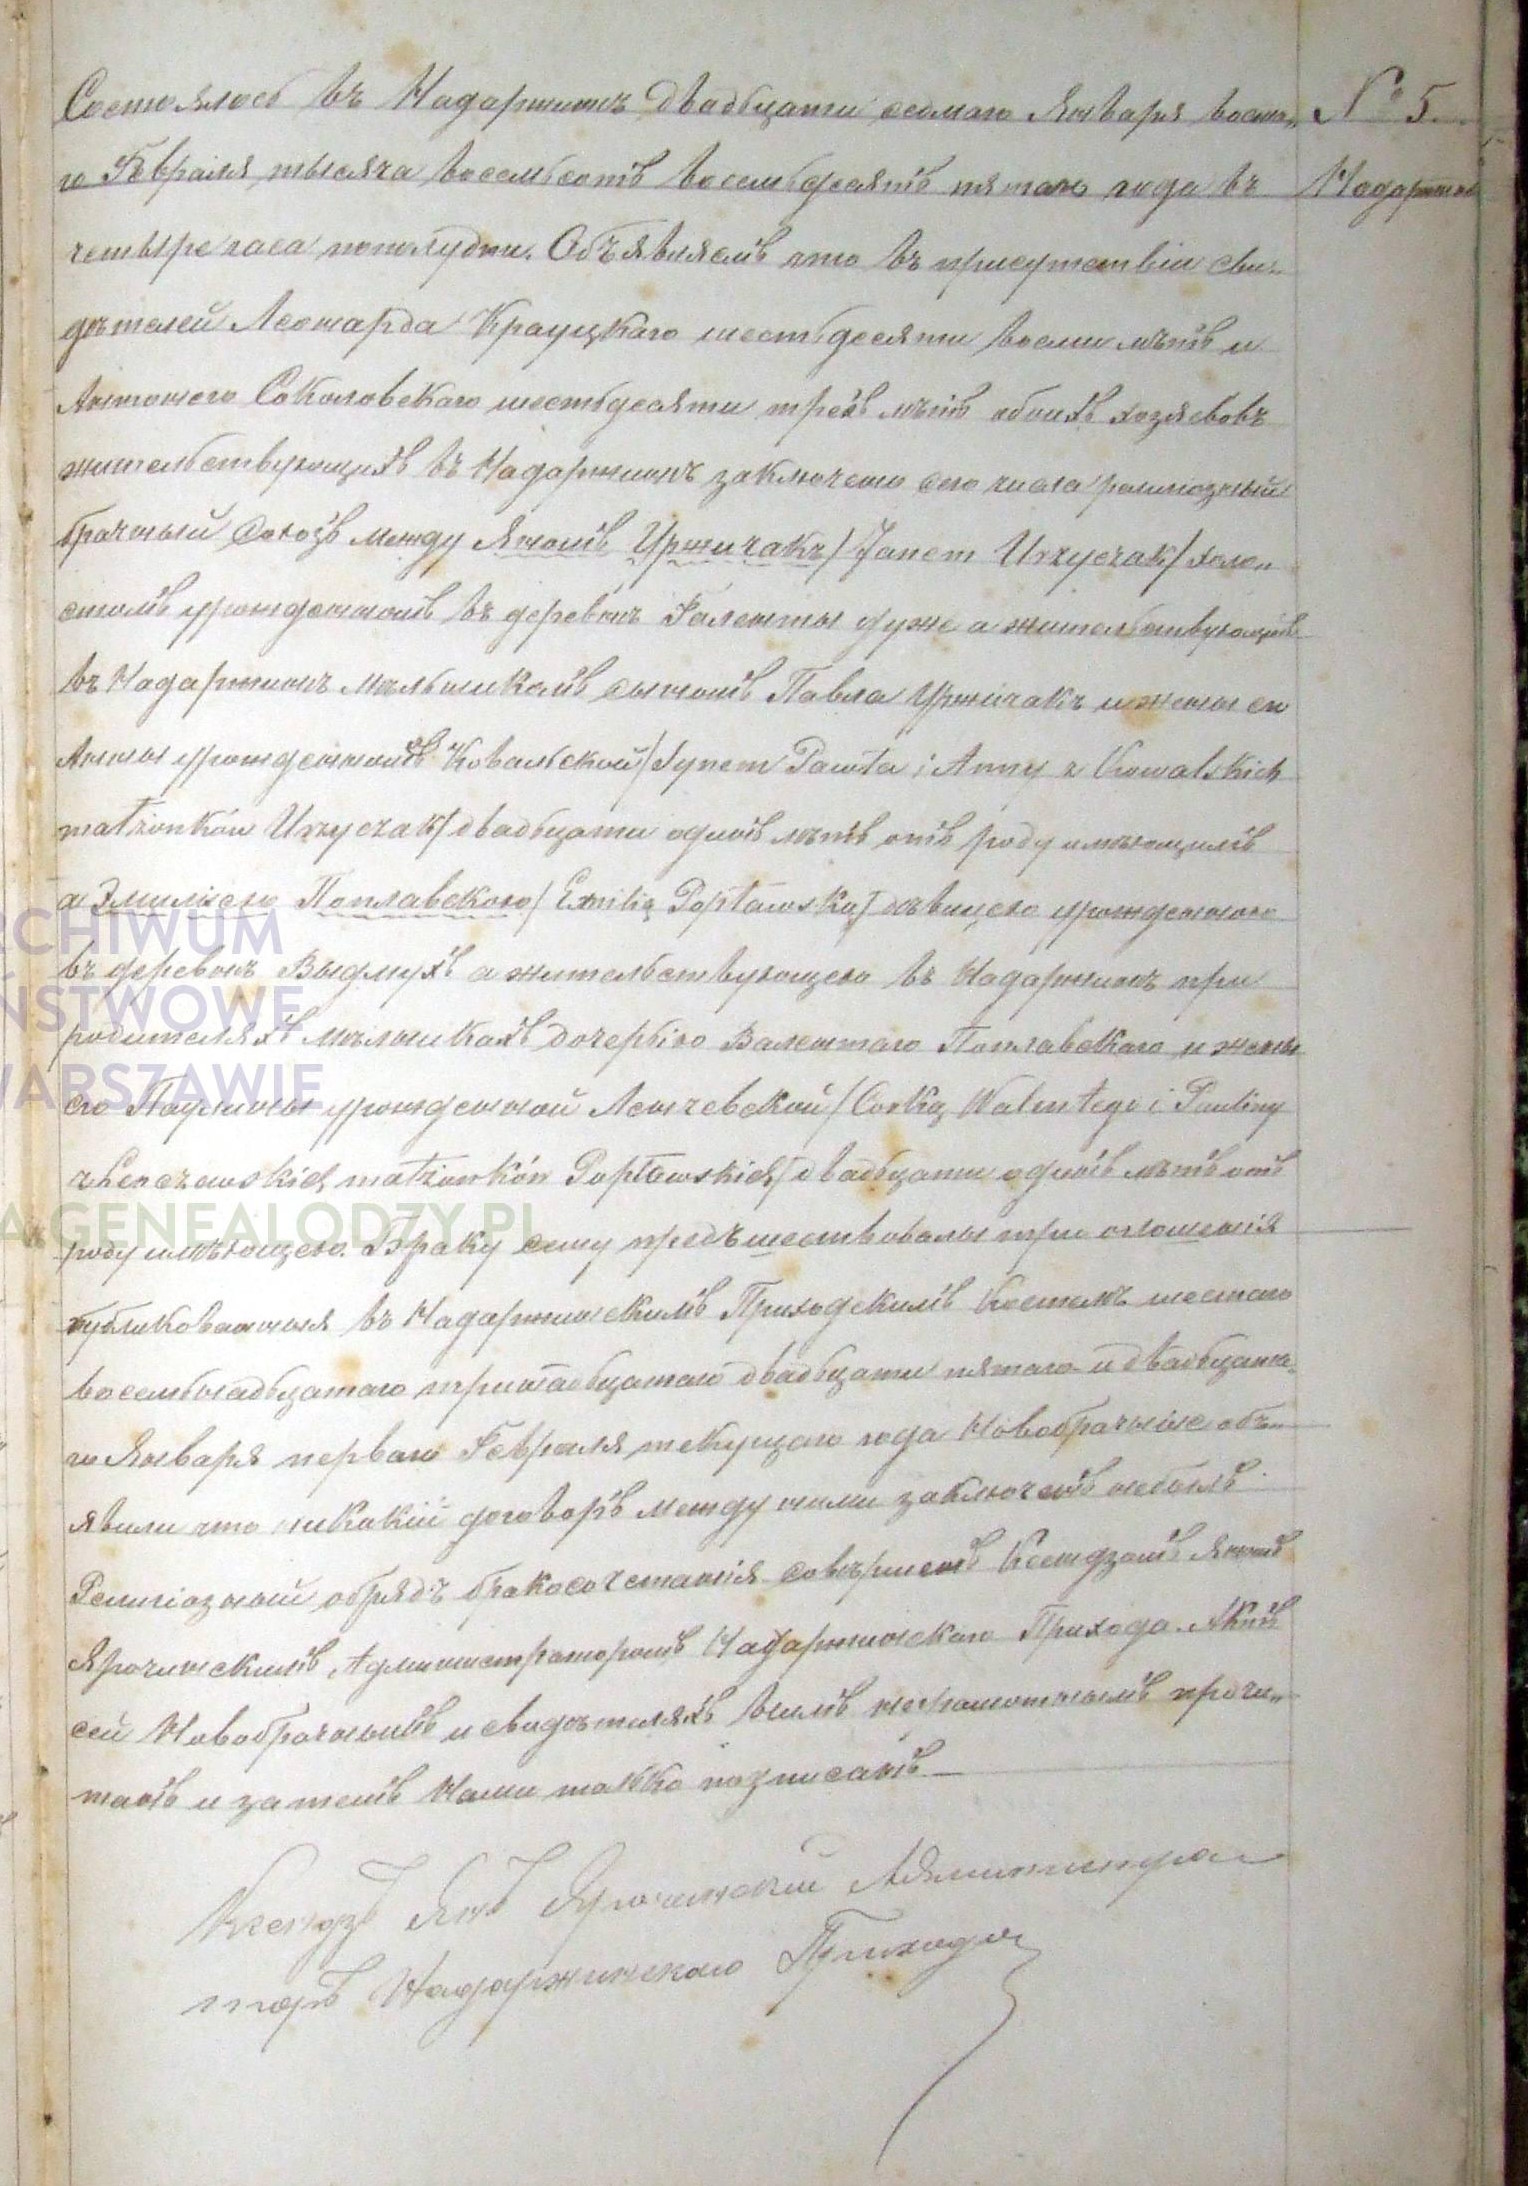 Состоялось въ Надаржинѣ двадцати седмаго Января восьма„
го Февраля тысяча восемьсотъ восемьдесятъ пятаго года въ
четыре часа пополудни. Объявляемъ что въ присутствіи сви„
дѣтелей Леонарда Крауцкаго шестьдесяти восми лѣтъ и
Антонего Соколовскаго шестьдесяти трехъ лѣтъ обоихъ хозяевовъ
жительствующихъ въ Надаржинѣ заключено сего числа религіозный
брачный союзъ между Яномъ Уржичакъ /Janem Urzyczak/ холо„
стымъ урожденнымъ въ деревнѣ Фаленты дуже а жительствующимъ
въ Надаржинѣ мѣльникомъ сыномъ Павла Уржичакъ и жены его
Анны урожденной Ковальской /Synem Pawła i Anny z Kowalskich
małżonków Urzyczak/ двадцати одинъ лѣтъ отъ роду имѣющимъ
а Эмиліею Поплавскою /Emilią Popławską/ дѣвицею урожденною
въ деревнѣ Выдмухъ а жительствующею въ Надаржинѣ при
родителяхъ мѣльникахъ дочерью Валентаго Поплавскаго и жены
его Паулины урожденной Ленчевской /Corką Walentego i Pauliny
z Lenczewskich małżonków Popławskich/ двадцати одинъ лѣтъ отъ
роду имѣющею. Браку сему предшествовалы три оглошенія
публикованныя въ Надаржинскимъ Приходскимъ Костелѣ шестаго
восемьнадцатаго тринадцатаго двадцати пятаго и двадцата„
го Января перваго Февраля текущаго года Новобрачные объ„
явили что никакій договоръ между ними заключенъ небылъ.
Религіозный обрядъ бракосочетанія совершенъ Ксендзомъ Яномъ
Ярочинскимъ Администраторомъ Надаржинскаго Прихода. Актъ
сей Новобрачнымъ и свидѣтеляхъ всимъ неграмотнымъ прочи„
танъ и затемъ Нами только подписанъ
Ксендзъ Янъ Ярочинскій Администра
торъ Надаржинскаго Прихода
№ 5.
Надаржинъ
ARCHIWUM
PAŃSTWOWE
WARSZAWIE
GENEALODZY.PL